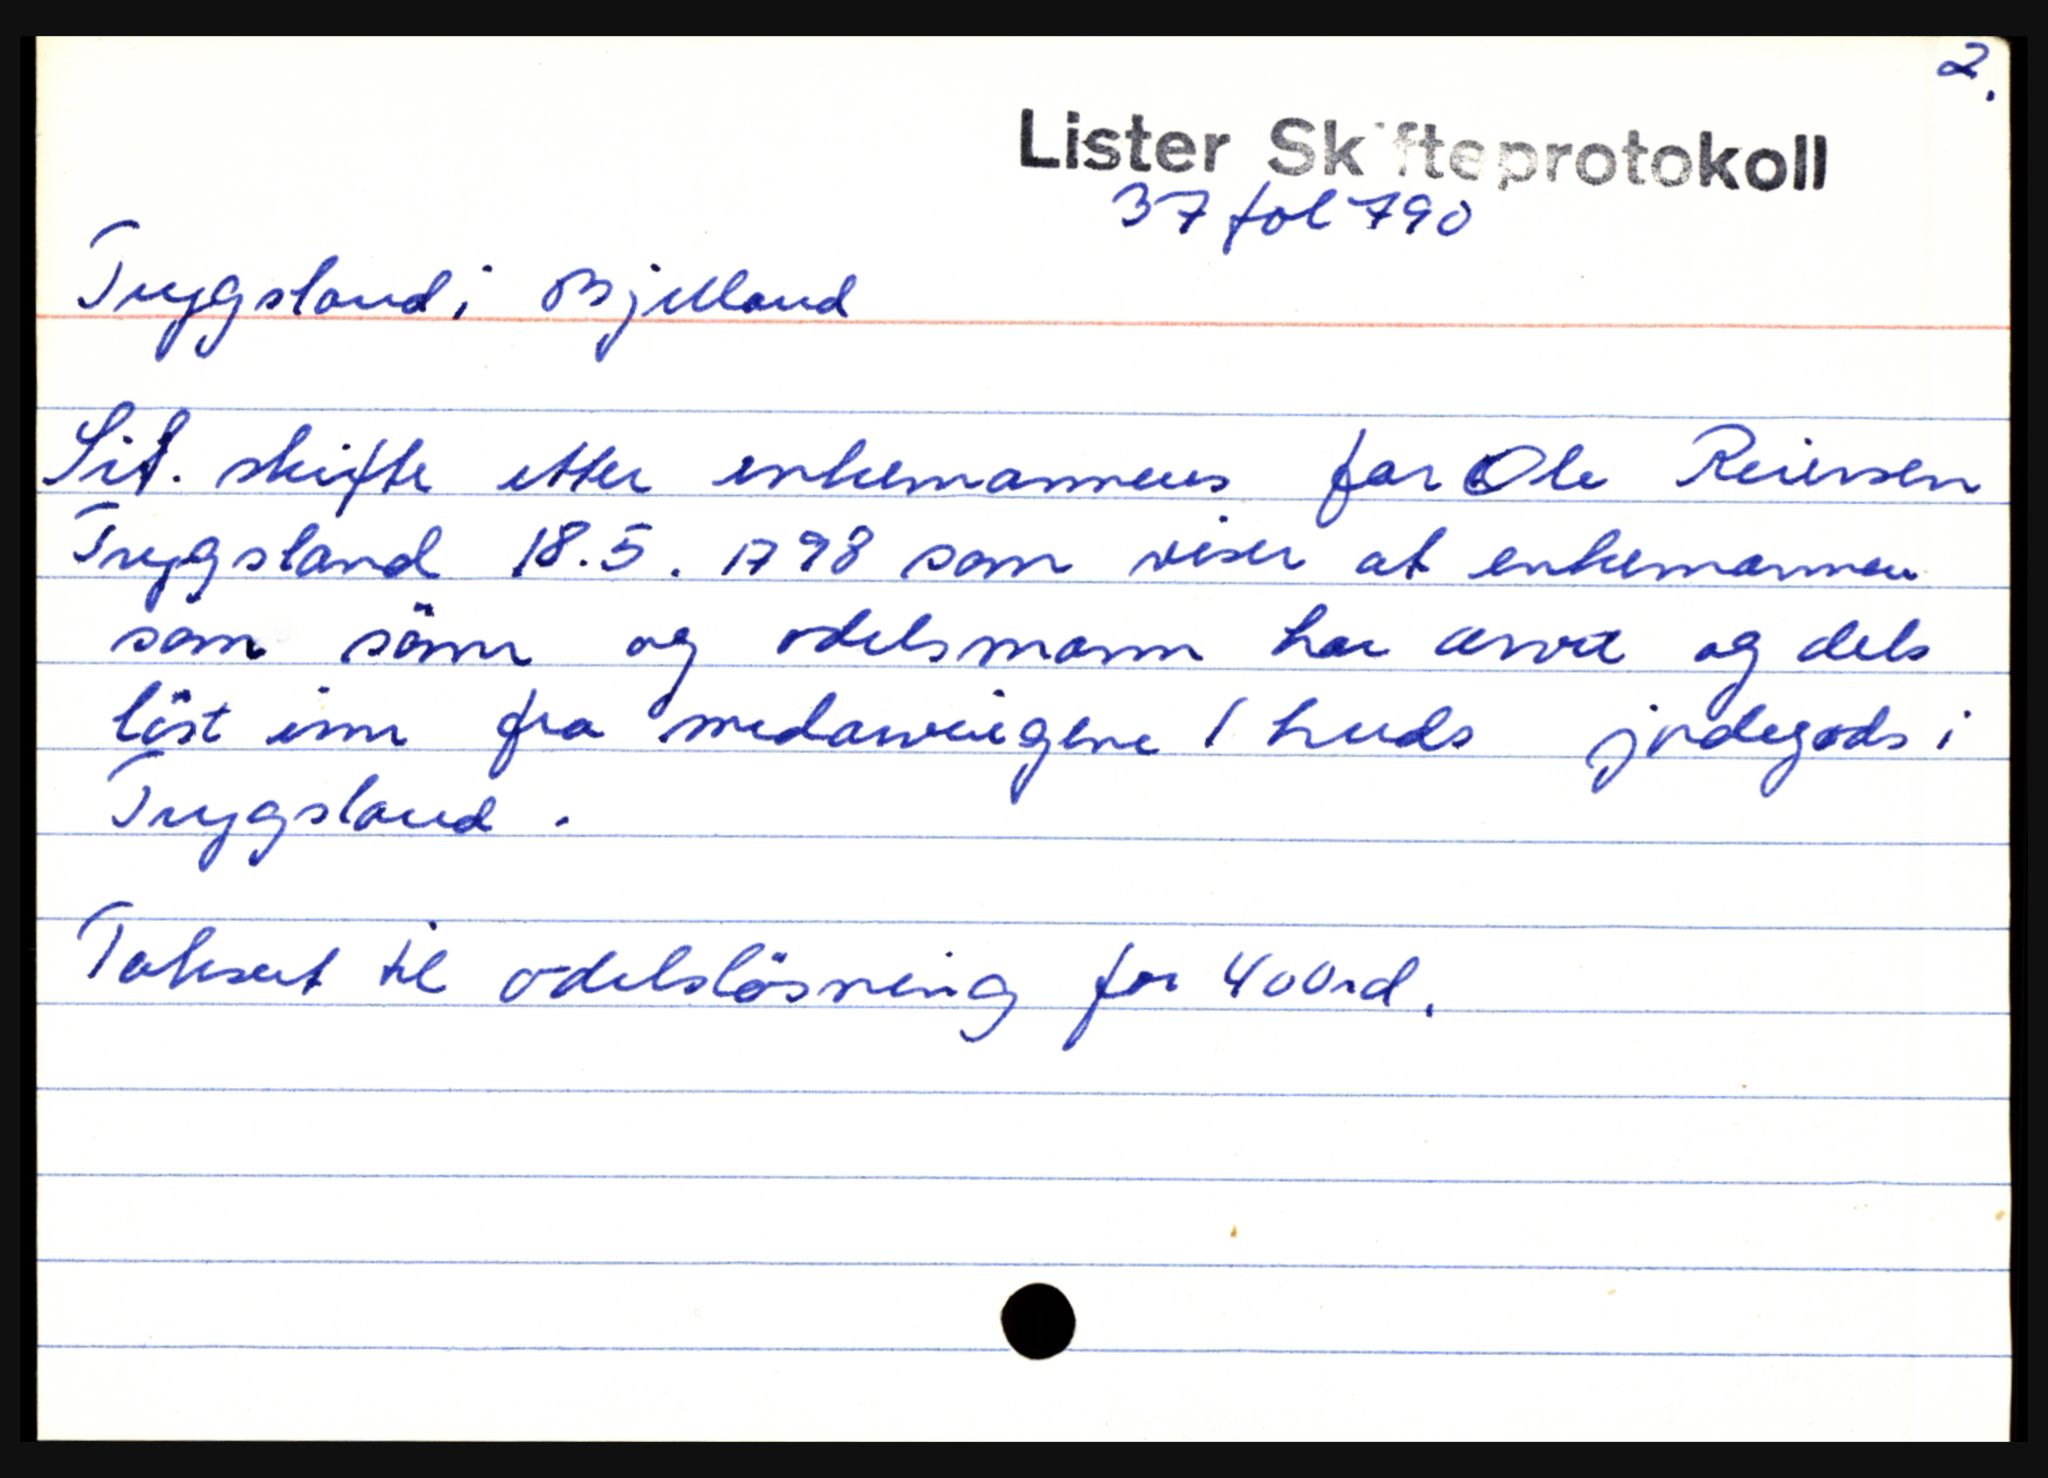 2.
Lister Skifteprotokoll
37 fol 790
Trygsland i Bjelland
Sit. skifte etter enkemannens far Ole Reiersen
Trygsland 18.5. 1798 som viser at enkemannen
som sönn og odelsmann har arvet og dels
löst inn fra medarvingene 1 huds jordegods i
Trygsland.
Taksert til odelslösning for 400rd.